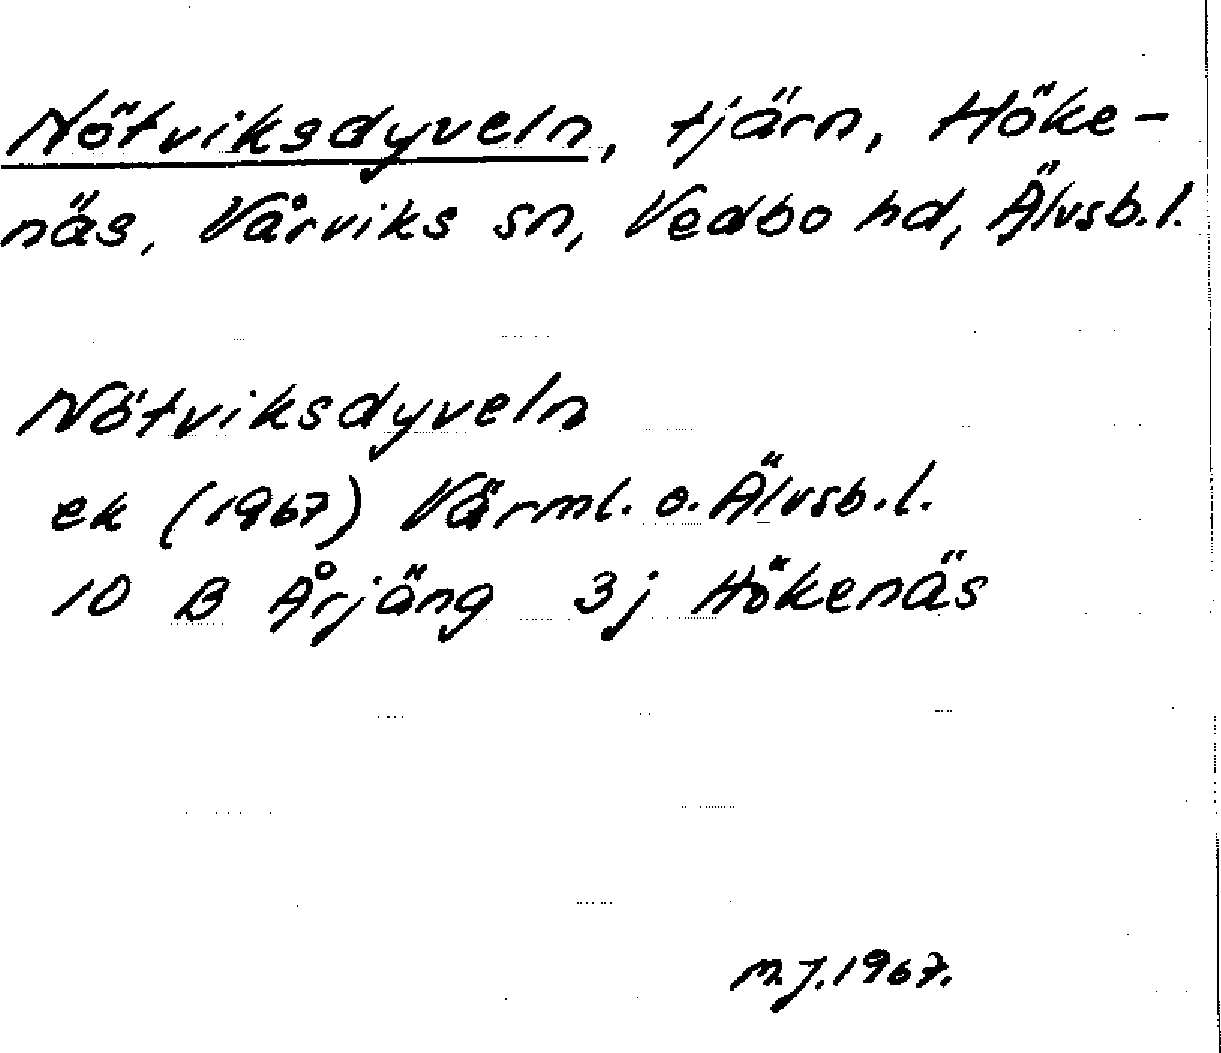 Nötviksdyveln, tjärn, Höke-
näs, Vårviks sn, Vedbo hd, Älvsb.l.
Nötviksdyveln
ek (1967) Värml. o. Älvsb.l.
10 B Årjäng 3j Hökenäs
M.J. 1967.